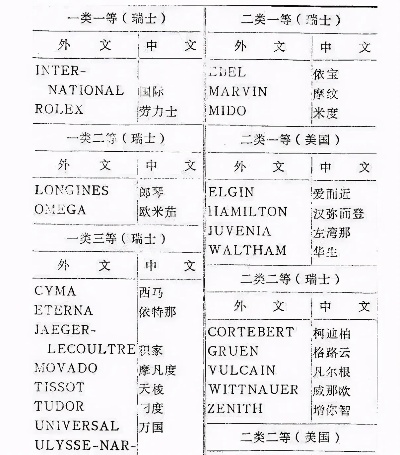 一类一等(瑞士)
外文 中文
INTER-
NATIONAL 国际
ROLEX 劳力士
一类二等(瑞士)
外文 中文
LONGINES 郎琴
OMEGA 欧米茄
一类三等(瑞士)
外文 中文
CYMA 西马
ETERNA 依特那
JAEGER-
LECOULTRE 积家
MOVADO 摩凡度
TISSOT 天梭
TUDOR
UNIVERSAL 万国
ULYSSE-NAR-
二类一等(瑞士)
外文 中文
EBEL 依宝
MARVIN 摩纹
MIDO 米度
二类一等(美国)
外文 中文
ELGIN 爱而近
HAMILTON 汉弥而登
JUVENIA 左湾那
WALTHAM 华生
二类二等(瑞士)
外文 中文
CORTEBERT 柯迪柏
GRUEN 格路云
VULCAIN 凡尔根
WITTNAUER 威那欧
ZENITH 增你智
二类二等(美国)